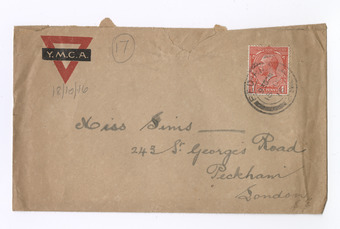 17
Y.M.C.A.
18/10/16
Miss Sims
243 St George's Road
Peckham
London